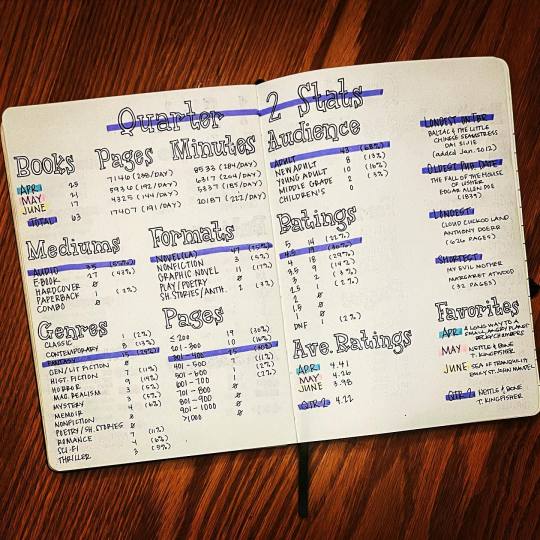 Quarter 2 Stats
Books Pages Minutes
APR 25 7140 (238/DAY) 8533 (284/DAY)
MAY 21 5936 (192/DAY) 6317 (204/DAY)
JUNE 17 4325 (144/DAY) 5337 (185/DAY)
TOTAL 63 17407 (191/DAY) 20187 (222/DAY)
Mediums
AUDIO 35
E-BOOK 27 (43%)
HARDCOVER ø
PAPERBACK 1 (2%)
COMBO ø
Formats
NOVEL(LA)
NONFICTION 3
GRAPHIC NOVEL 11 (17%)
PLAY/POETRY ø
SH. STORIES/ANTH. 2
Genres
CLASSIC 1 (2%)
CONTEMPORARY 8 (13%)
FANTASY 15
GEN/LIT FICTION ø
HIST. FICTION 7 (11%)
HORROR 9 (14%)
MAG. REALISM 3 (5%)
MYSTERY 4 (6%)
MEMOIR ø
NONFICTION ø
POETRY/SH. STORIES ø
ROMANCE 7 (11%)
SCI-FI 4 (6%)
THRILLER 3 (5%)
Pages
≤ 200 19 (30%)
201-300 10 (16%)
301-400
401-500 7 (11%)
501-600 1 (2%)
601-700 1 (2%)
701-800 ø
801-900 ø
901-1000 ø
>1000 ø
Audience
ADULT 43 (68%)
NEW ADULT 8 (13%)
YOUNG ADULT 10 (16%)
MIDDLE GRADE 2 (3%)
CHILDREN'S 0
Ratings
5 14 (22%)
4.5 19 (30%)
4 18 (29%)
3.5 9 (14%)
3 2 (3%)
DNF 1 (2%)
Ave. Ratings
APR 4.41
MAY 4.26
JUNE 3.98
QTR 2 4.22
LONGEST ON TBR
BALZAC & THE LITTLE
CHINESE SEAMSTRESS
DAI SIJIE
(added Jan. 2012)
OLDEST PUB DATE
THE FALL OF THE HOUSE
OF USHER
EDGAR ALLEN POE
(1839)
LONGEST
CLOUD CUCKOO LAND
ANTHONY DOERR
(626 PAGES)
SHORTEST
MY EVIL MOTHER
MARGARET ATWOOD
(32 PAGES)
Favorites
APR A LONG WAY TO A
SMALL, ANGRY PLANET
BECKY CHAMBERS
MAY NETTLE & BONE
T. KINGFISHER
JUNE SEA OF TRANQUILITY
EMILY ST. JOHN MANDEL
QTR 2 NETTLE & BONE
T. KINGFISHER